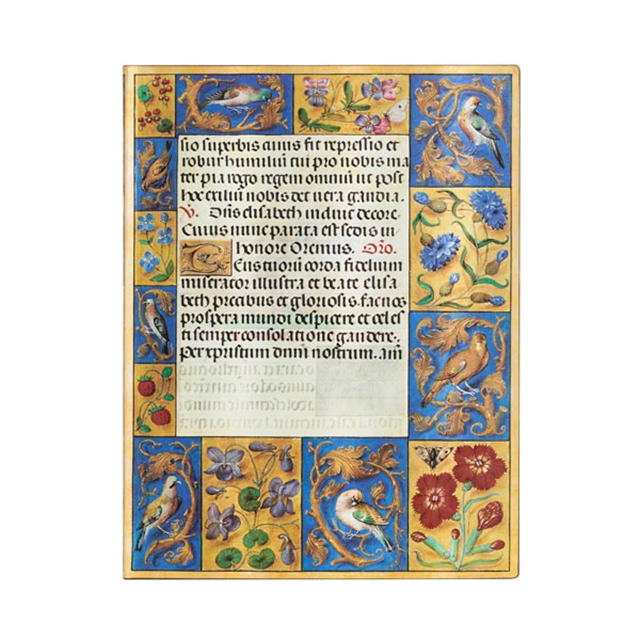 sio superbis cuius fit repressio et
robur humiliū cui pro nobis ma
ter pia rogo regem omniū ut post
hoc exiliū nobis det uera gaudia.
V. Dn̄s elisabeth induit decore
Cuius nunc parata est sedis in
honore Oremus. Or̄o.
Eus tuorū corda fidelium
miserator illustra et beate elisa
beth precibus et gloriosis fac nos
prospera mundi despicere et celes
ti semper consolatione gaudere.
per xpristum dn̄m nostrum. am̄